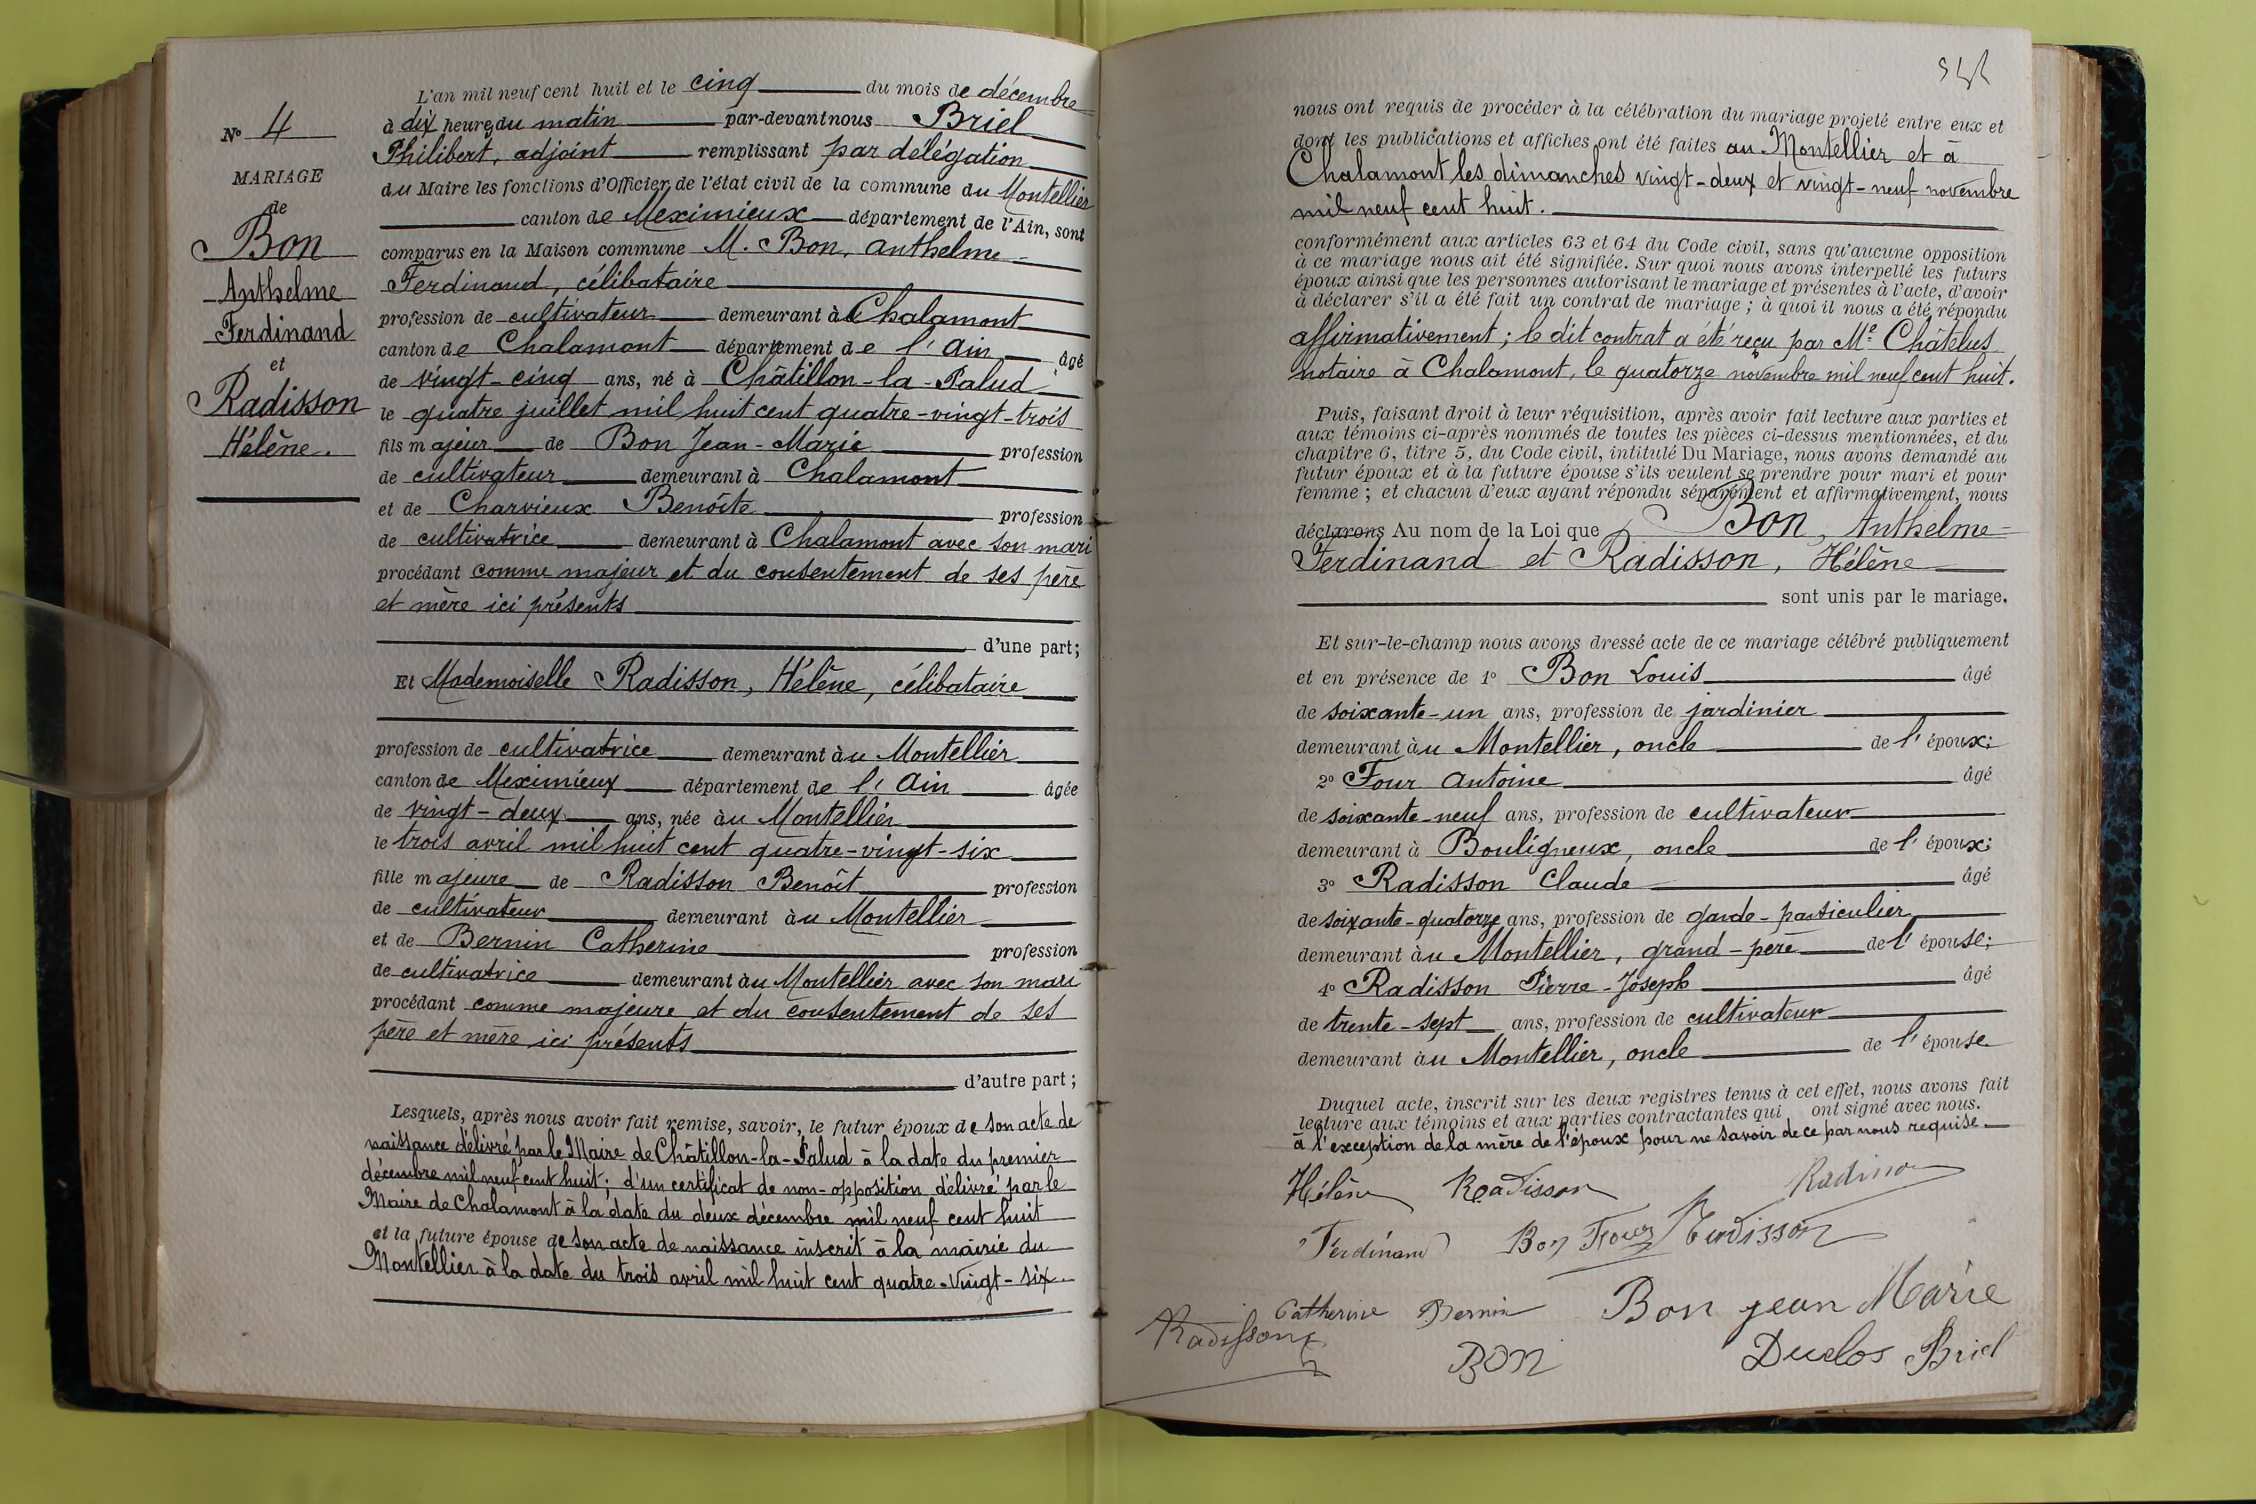 N° 4
MARIAGE
de
Bon
Anthelme
Ferdinand
et
Radisson
Hélène.
L'an mil neuf cent huit et le cinq du mois de décembre
à dix heures du matin par-devant nous Briel
Philibert, adjoint remplissant par délégation
du Maire les fonctions d'Officier de l'état civil de la commune du Montellier
canton de Meximieux département de l'Ain, sont
comparus en la Maison commune M. Bon, Anthelme
Ferdinand, célibataire
profession de cultivateur demeurant à Chalamont
canton de Chalamont département de l'Ain âgé
de vingt-cinq ans, né à Châtillon-la-Palud
le quatre juillet mil huit cent quatre-vingt-trois
fils majeur de Bon Jean-Marie profession
de cultivateur demeurant à Chalamont
et de Charvieux Benoîte profession
de cultivatrice demeurant à Chalamont avec son mari
procédant comme majeur et du consentement de ses père
et mère ici présents
d'une part;
Et Mademoiselle Radisson, Hélène, célibataire
profession de cultivatrice demeurant àu Montellier
canton de Meximieux département de l'Ain âgée
de vingt-deux ans, née àu Montellier
le trois avril mil huit cent quatre-vingt-six
fille majeure de Radisson Benoît profession
de cultivateur demeurant àu Montellier
et de Bernin Catherine profession
de cultivatrice demeurant àu Montellier avec son mari
procédant comme majeure et du consentement de ses
père et mère ici présents
d'autre part;
Lesquels, après nous avoir fait remise, savoir, le futur époux de son acte de
naissance délivré par le Maire de Châtillon-la-Palud à la date du premier
décembre mil neuf cent huit; d'un certificat de non-opposition délivré par le
Maire de Chalamont à la date du deux décembre mil neuf cent huit
et la future épouse de son acte de naissance inscrit à la mairie du
Montellier à la date du trois avril mil huit cent quatre-vingt-six.
nous ont requis de procéder à la célébration du mariage projeté entre eux et
dont les publications et affiches ont été faites au Montellier et à
Chalamont les dimanches vingt-deux et vingt-neuf novembre
mil neuf cent huit.
conformément aux articles 63 et 64 du Code civil, sans qu'aucune opposition
à ce mariage nous ait été signifiée. Sur quoi nous avons interpellé les futurs
époux ainsi que les personnes autorisant le mariage et présentes à l'acte, d'avoir
à déclarer s'il a été fait un contrat de mariage; à quoi il nous a été répondu
affirmativement; le dit contrat a été reçu par Me Châtelus
notaire à Chalamont, le quatorze novembre mil neuf cent huit.
Puis, faisant droit à leur réquisition, après avoir fait lecture aux parties et
aux témoins ci-après nommés de toutes les pièces ci-dessus mentionnées, et du
chapitre 6, titre 5, du Code civil, intitulé Du Mariage, nous avons demandé au
futur époux et à la future épouse s'ils veulent se prendre pour mari et pour
femme; et chacun d'eux ayant répondu séparément et affirmativement, nous
déclarons Au nom de la Loi que Bon, Anthelme
Ferdinand et Radisson, Hélène
sont unis par le mariage.
Et sur-le-champ nous avons dressé acte de ce mariage célébré publiquement
et en présence de 1° Bon Louis âgé
de soixante-un ans, profession de jardinier
demeurant àu Montellier, oncle de l'époux;
2° Four Antoine âgé
de soixante-neuf ans, profession de cultivateur
demeurant à Bouligneux, oncle de l'époux;
3° Radisson Claude âgé
de soixante-quatorze ans, profession de garde-particulier
demeurant àu Montellier, grand-père de l'épouse;
4° Radisson Pierre-Joseph âgé
de trente-sept ans, profession de cultivateur
demeurant àu Montellier, oncle de l'épouse.
Duquel acte, inscrit sur les deux registres tenus à cet effet, nous avons fait
lecture aux témoins et aux parties contractantes qui ont signé avec nous.
à l'exception de la mère de l'époux pour ne savoir de ce par nous requise.
Hélène Radisson Radisson
Ferdinand Bon Four Radisson
Catherine Bernin Bon jean Marie
Radisson Bon Duclos Briel